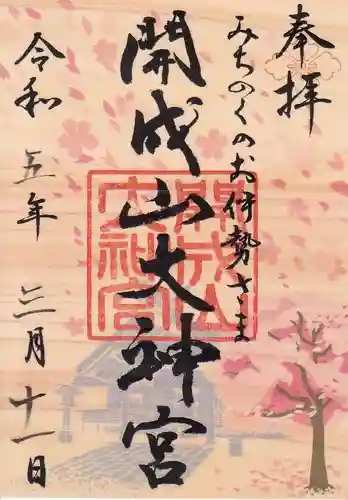 奉拝
みちのくのお伊勢さま
開成山大神宮
開成山
大神宮
令和五年三月十一日